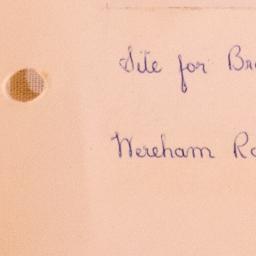 Site for Br
Wereham Ro